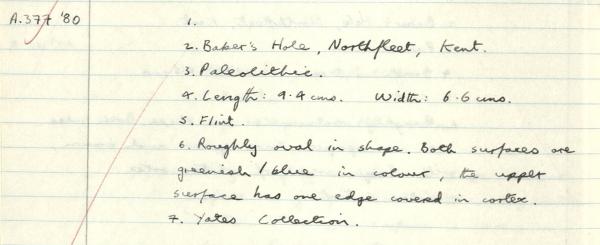 A.377 '80
1.
2. Baker's Hole, Northfleet, Kent.
3. Paleolithic.
4. Length: 9.4 cms. Width: 6.6 cms.
5. Flint.
6. Roughly oval in shape. Both surfaces are
greenish / blue in colour, the upper
surface has one edge covered in cortex.
7. Yates Collection.